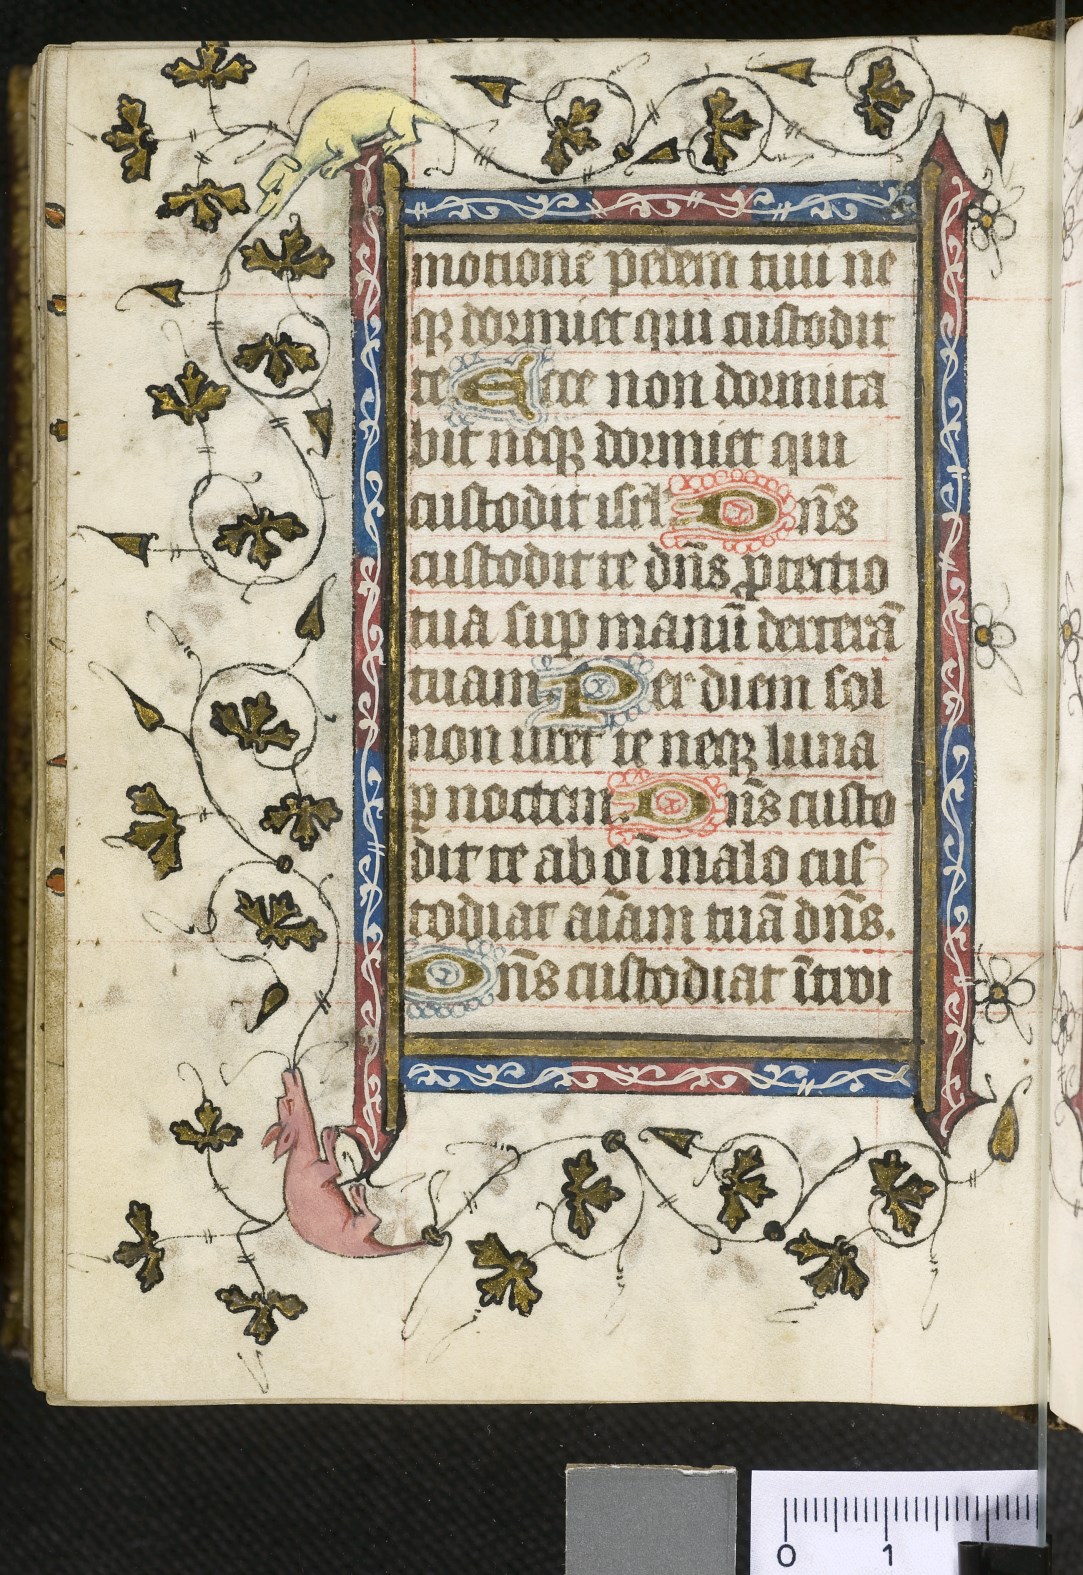 motionē pedem tuu ne
qꝫ dormiet qui custodit
te Ecce non dormita
bit neqꝫ dormiet qui
custodit isrl Dn̄s
custodit te dn̄s ꝓtectio
tua suꝑ manū dexterā
tuam. Per diem sol
non uret te neqꝫ luna
ꝑ noctem. Dn̄s custo
dit te ab oī malo cus
todiat aīam tuā dn̄s.
Dn̄s custodiat ītroi
0 1